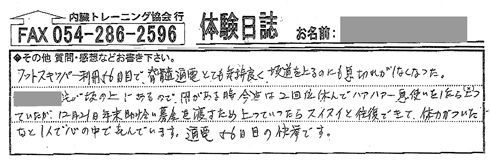 内臓トレーニング協会 行
FAX 054-286-2596
体験日誌
お名前:
◆その他 質問・感想などお書き下さい。
フットスキッパー利用56日目で、脊髄通電とても気持良く坂道を上るのにも息切れがなくなった。
坂の上にあるので、用がある時今迄は2回位休んでハアハア息使いをしたら上っ
ていたが、12月21日年末助け合い募金を渡すため上っていったらスイスイと往復できて、体力がついた
なと1人で心の中で喜んでいます。通電56日目の快挙です。